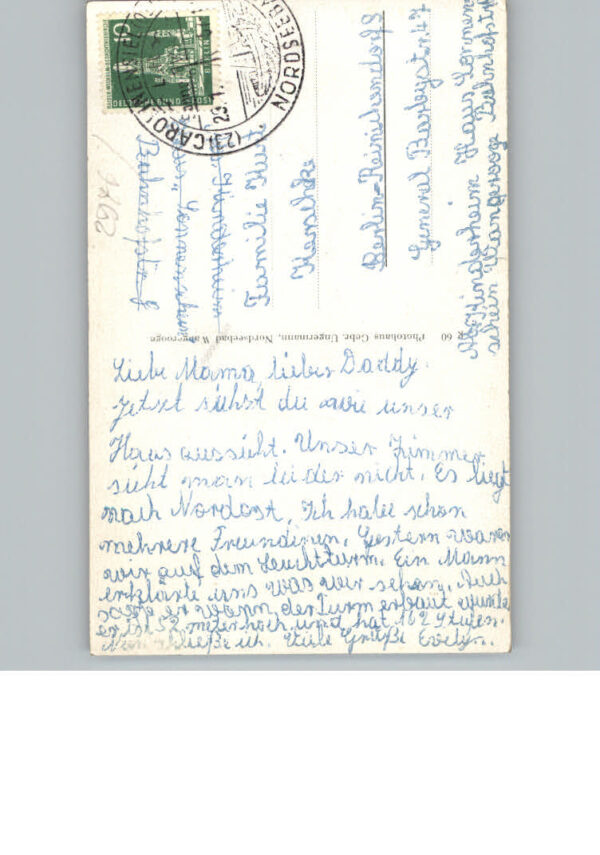 Liebe Mama, lieber Daddy.
Jetzt siehst du wie unser
Haus aussieht. Unser Zimmer
sieht man leider nicht. Es liegt
nach Nordost. Ich habe schon
mehrere Freundinen. Gestern waren
wir auf dem Leuchturm. Ein Mann
erklärte uns was wir sehen. Auch
sagte er wann der Turm erbaut wurde
er ist 52 meter hoch und hat 162 Stufen.
Nun ich. Viele Grüße Evelyn.
Photohaus Gebr. Ungermann, Nordseebad Wangerooge
60
Bahnhofstr.
Kinderheim
Familie
Berlin-Reinickendorf
General Barbystr. 47
Kinderheim Haus Sonnen
schein Wangerooge Bahnhofstr
(23) CAROLINENSIEL
NORDSEEBA
BERLIN
10